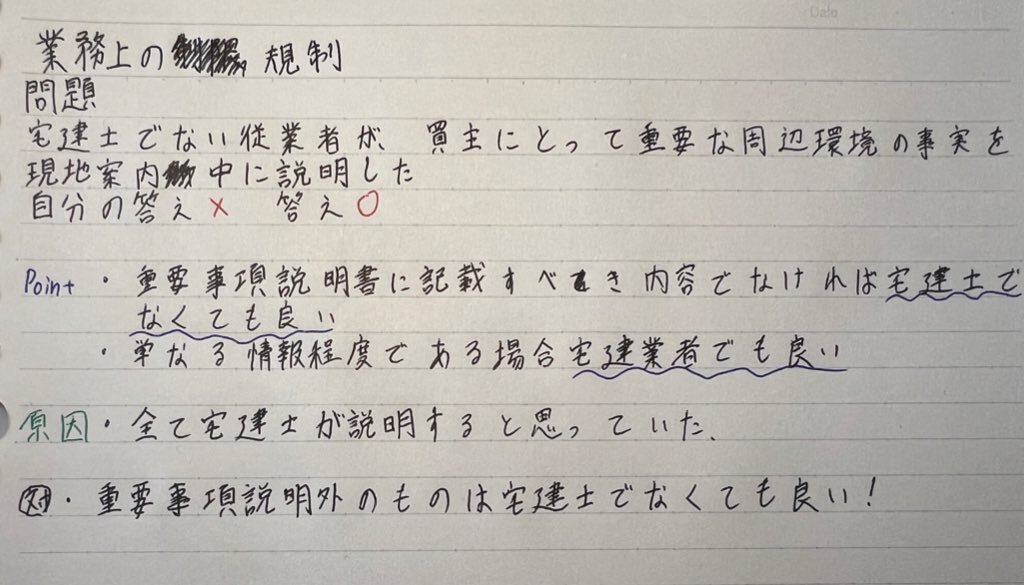 業務上の 規制
問題
宅建士でない従業者が、買主にとって重要な周辺環境の事実を
現地案内中に説明した
自分の答え × 答え ○
Point ・重要事項説明書に記載すべき内容でなければ宅建士で
なくても良い
・単なる情報程度である場合宅建業者でも良い
原因・全て宅建士が説明すると思っていた.
対・重要事項説明外のものは宅建士でなくても良い!